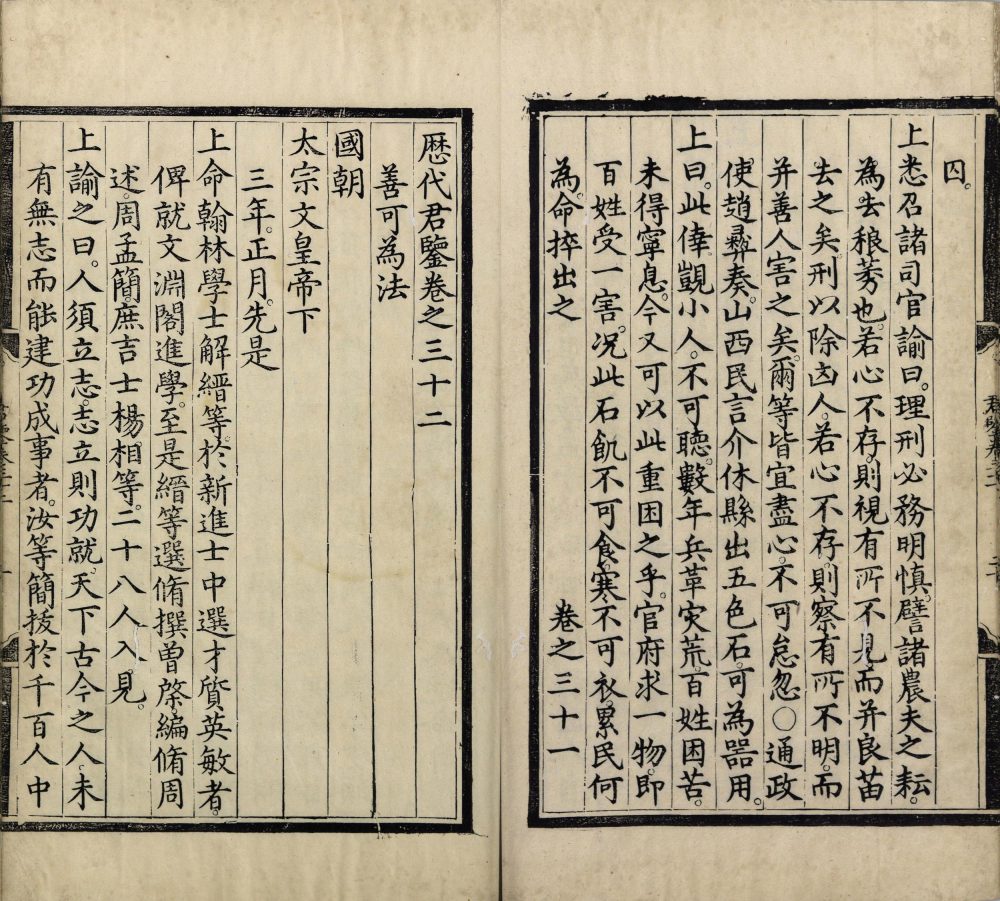 囚。
上悉召諸司官諭曰。理刑必務明慎。譬諸農夫之耘。
為去稂莠也。若心不存。則視有所不見。而并良苗
去之矣。刑以除凶人。若心不存。則察有所不明。而
并善人害之矣。爾等皆宜盡心。不可怠忽○通政
使趙彝奏。山西民言介休縣出五色石。可為器用。
上曰。此倖覬小人。不可聽。數年兵革灾荒。百姓困苦。
未得寧息。今又可以此重困之乎。官府求一物。即
百姓受一害。况此石飢不可食。寒不可衣。累民何
為。命捽出之
卷之三十一
歷代君鑒卷之三十二
善可為法
國朝
太宗文皇帝下
三年。正月。先是
上命翰林學士解縉等。於新進士中選才質英敏者。
俾就文淵閣進學。至是縉等選脩撰曾棨編脩周
述。周孟簡庶吉士楊相等。二十八人入見。
上諭之曰。人須立志。志立則功就。天下古今之人。未
有無志而能建功成事者。汝等簡拔於千百人中